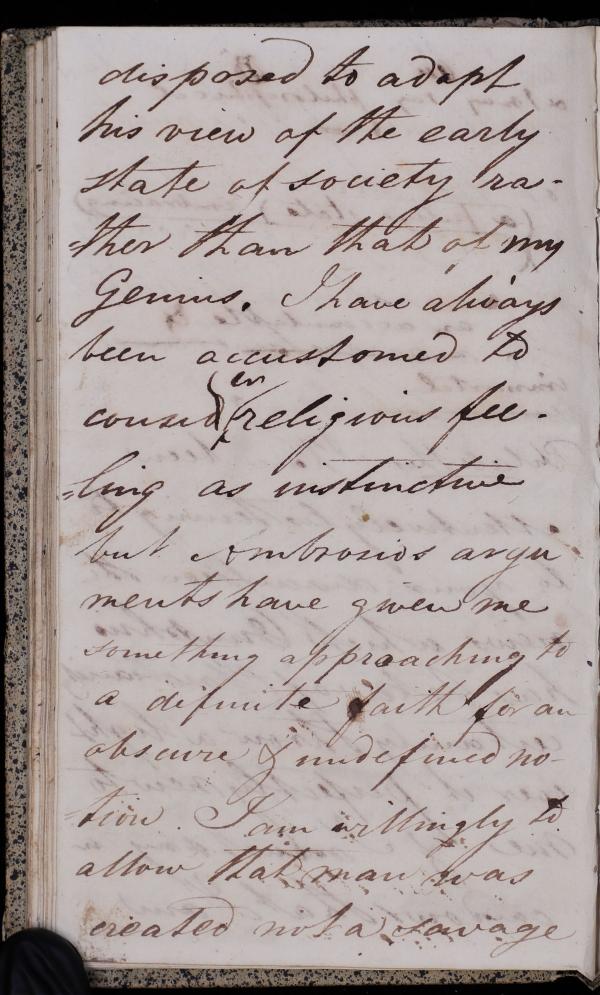 disposed to adopt
his view of the early
state of society ra-
-ther than that of my
Genius. I have always
been accustomed to
consider religious fee-
-ling as instinctive
but Ambrosios argu
ments have given me
something approaching to
a definite faith for an
obscure & undefined no-
-tion. I am willingly to
allow that man was
created not a savage